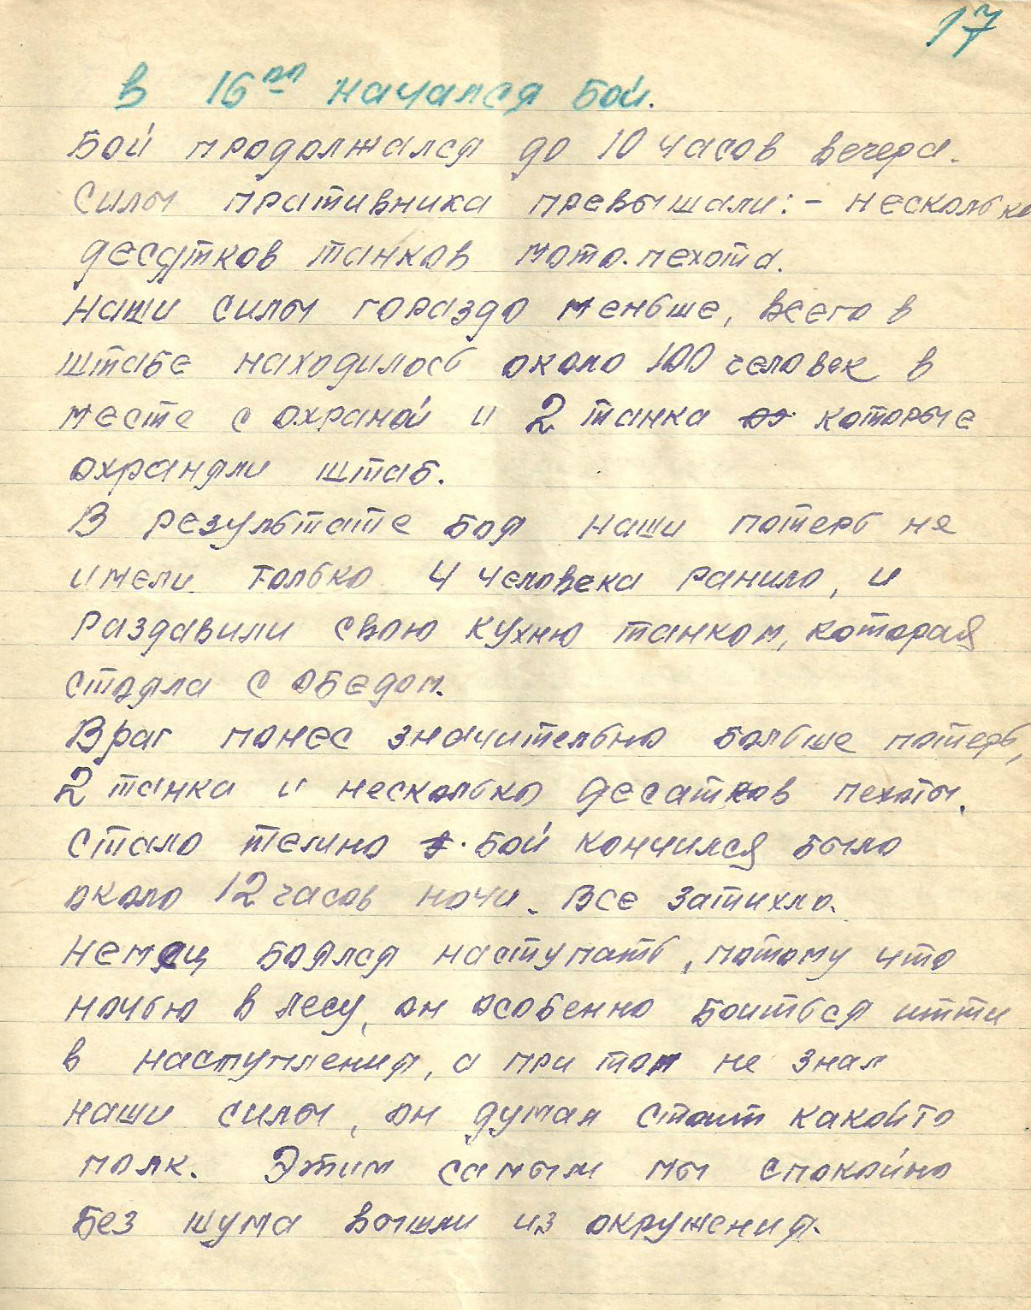 17
в 16⁰⁰ начался бой.
Бой продолжался до 10 часов вечера.
Силы пративника превышали:- несколько
десятков танков мото.пехота.
Наши силы гораздо меньше, всего в
штабе находилось около 100 человек в
месте с охраной и 2 танка которые
охраняли штаб.
В результате боя наши потерь не
имели только 4 человека ранило, и
раздавили свою кухню танком, которая
стояла с обедом.
Враг понес значительно больше потерь,
2 танка и несколько десатков пехоты.
Стало темно. Бой кончился было
около 12 часов ночи. Все затихло.
Немец боялся наступать, потому что
ночью в лесу, он особенно боиться итти
в наступления, а при том не знал
наши силы, он думал стоит какойто
полк. Этим самым мы спокойно
без шума вышли из окружения.